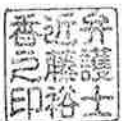 弁護士
近藤裕
香之印